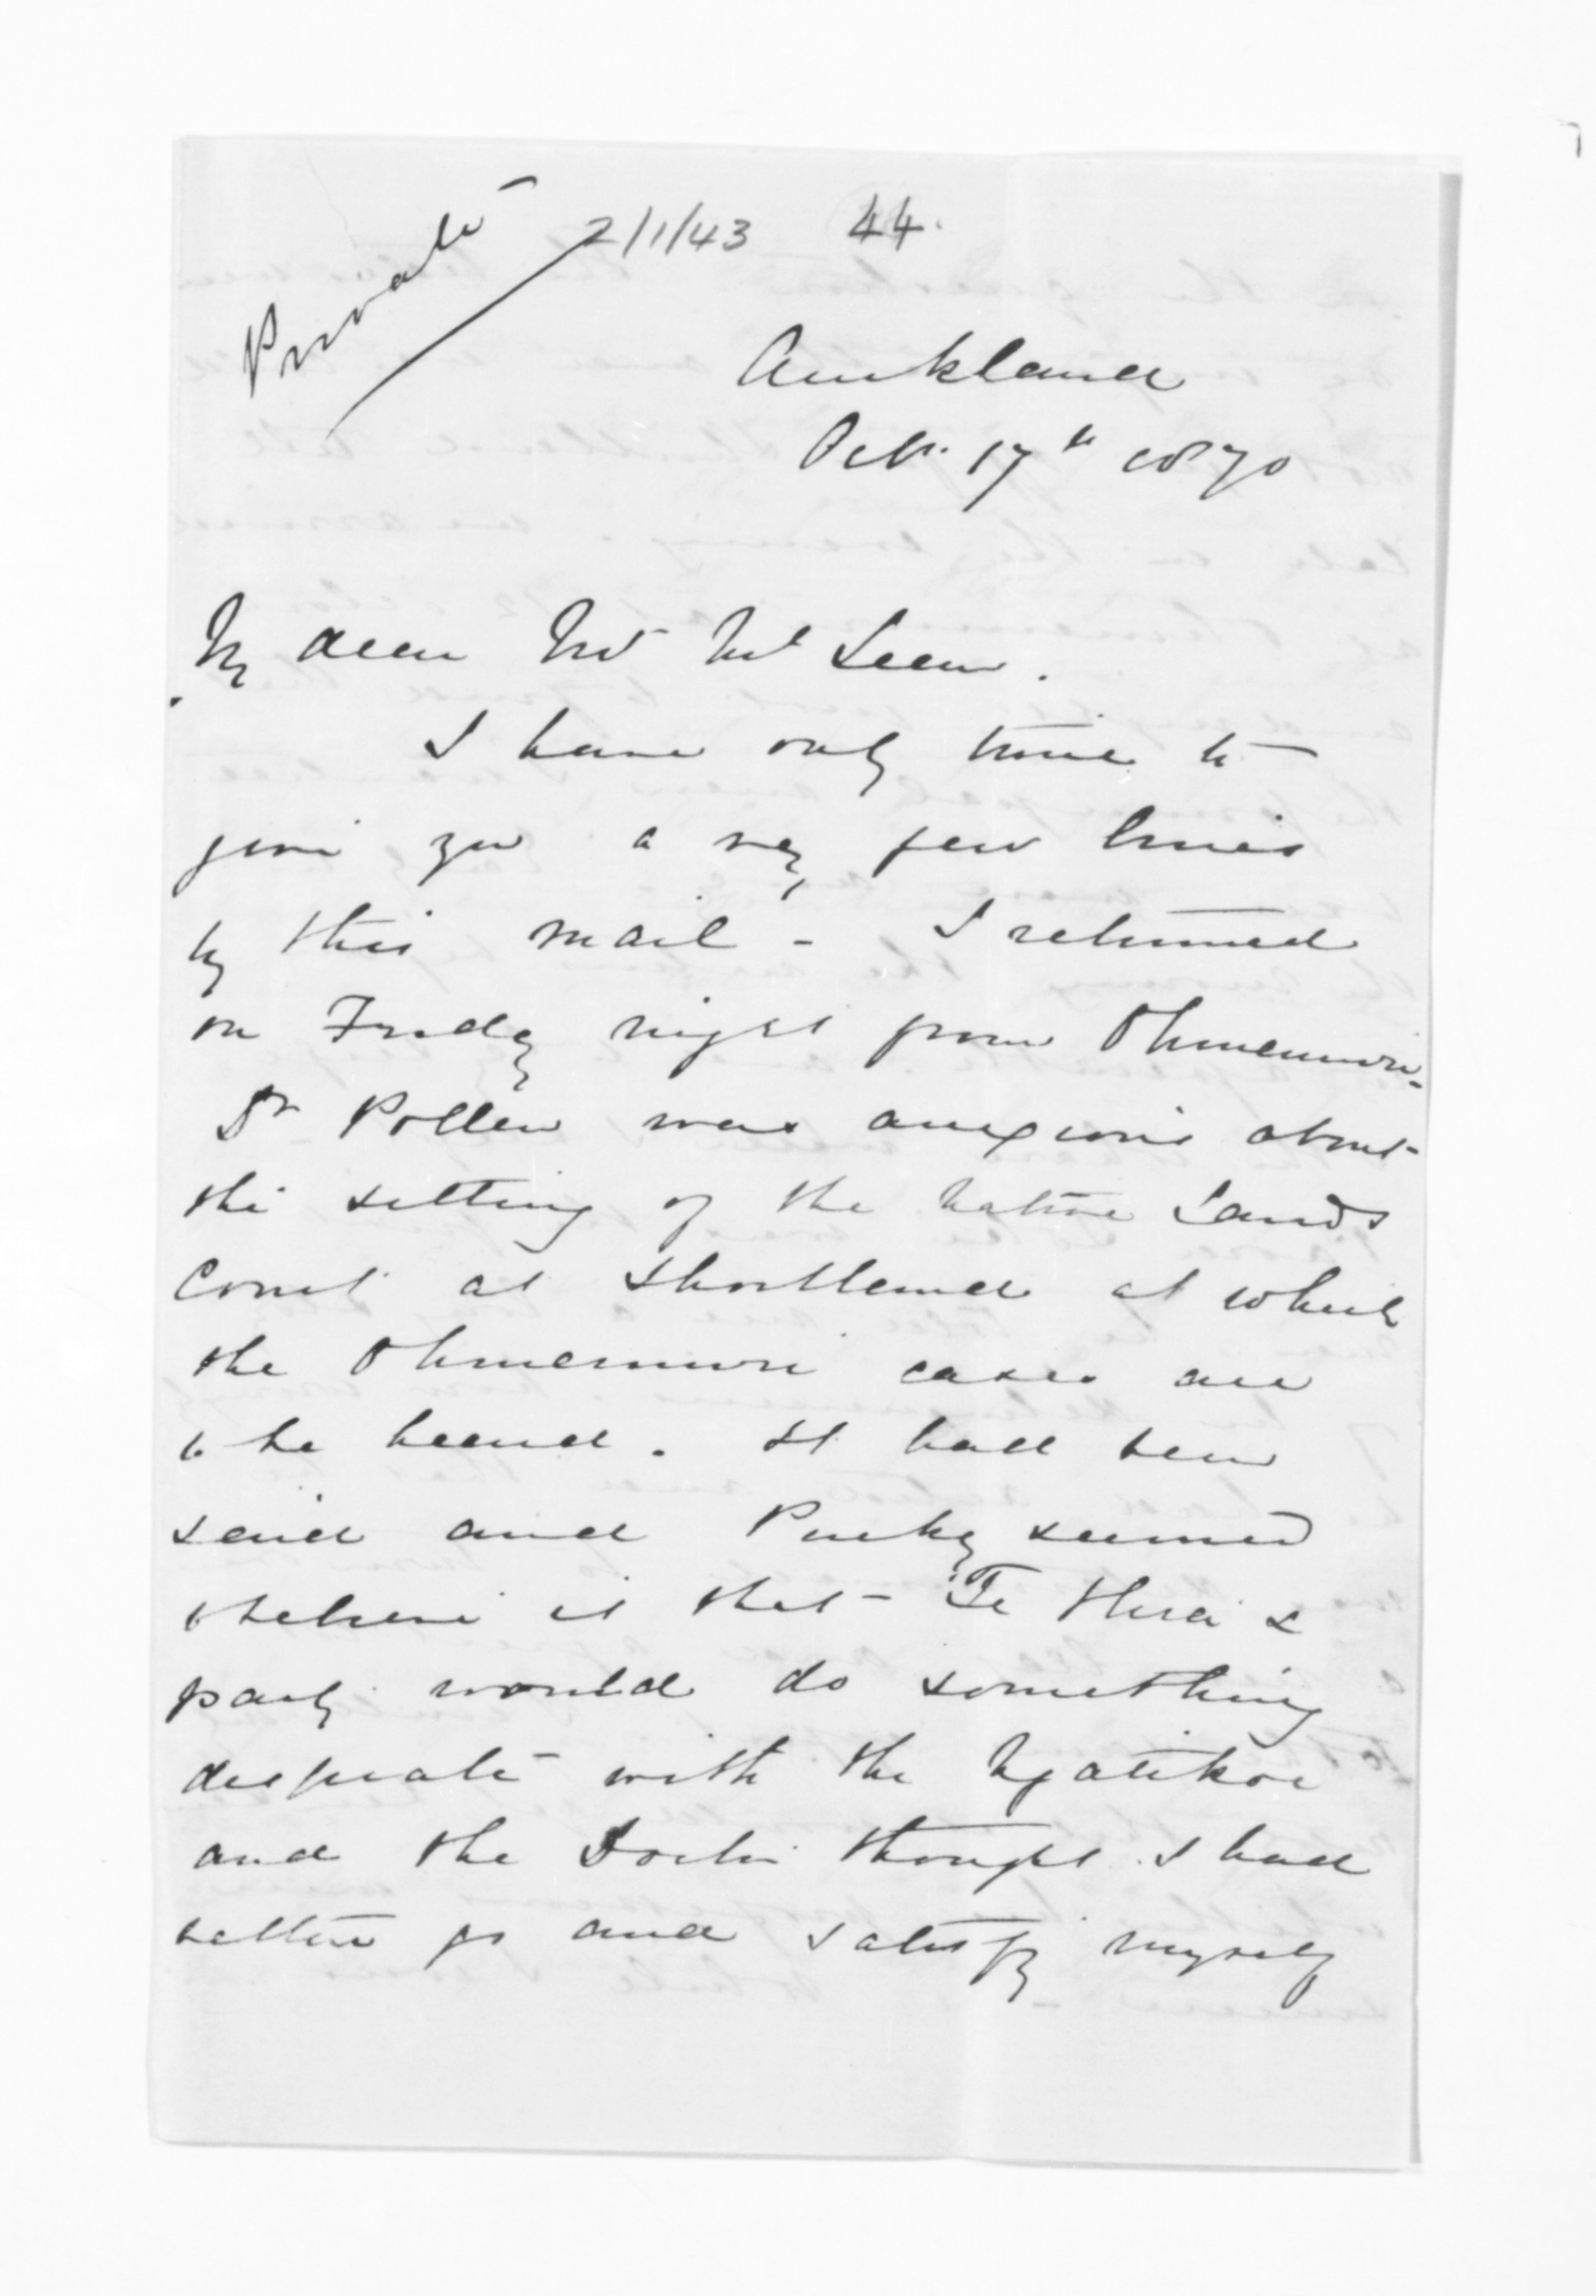 Private 2/1/43 44.
Auckland
Oct. 17th 1870
My dear Mr McLean.
I have only time to
give you a very few lines
by this mail - I returned
on Friday night from Ohinemuri -
Dr Pollen was anxious about
the sitting of the Native Lands
Court at Shortland at which
the Ohinemuri cases are
to be heard. It had been
said and Puckey seemed
to believe it that - Te Hira &
party would do something
desperate with the Ngatikoi
and the Doctor thought I had
better go and satisfy myself